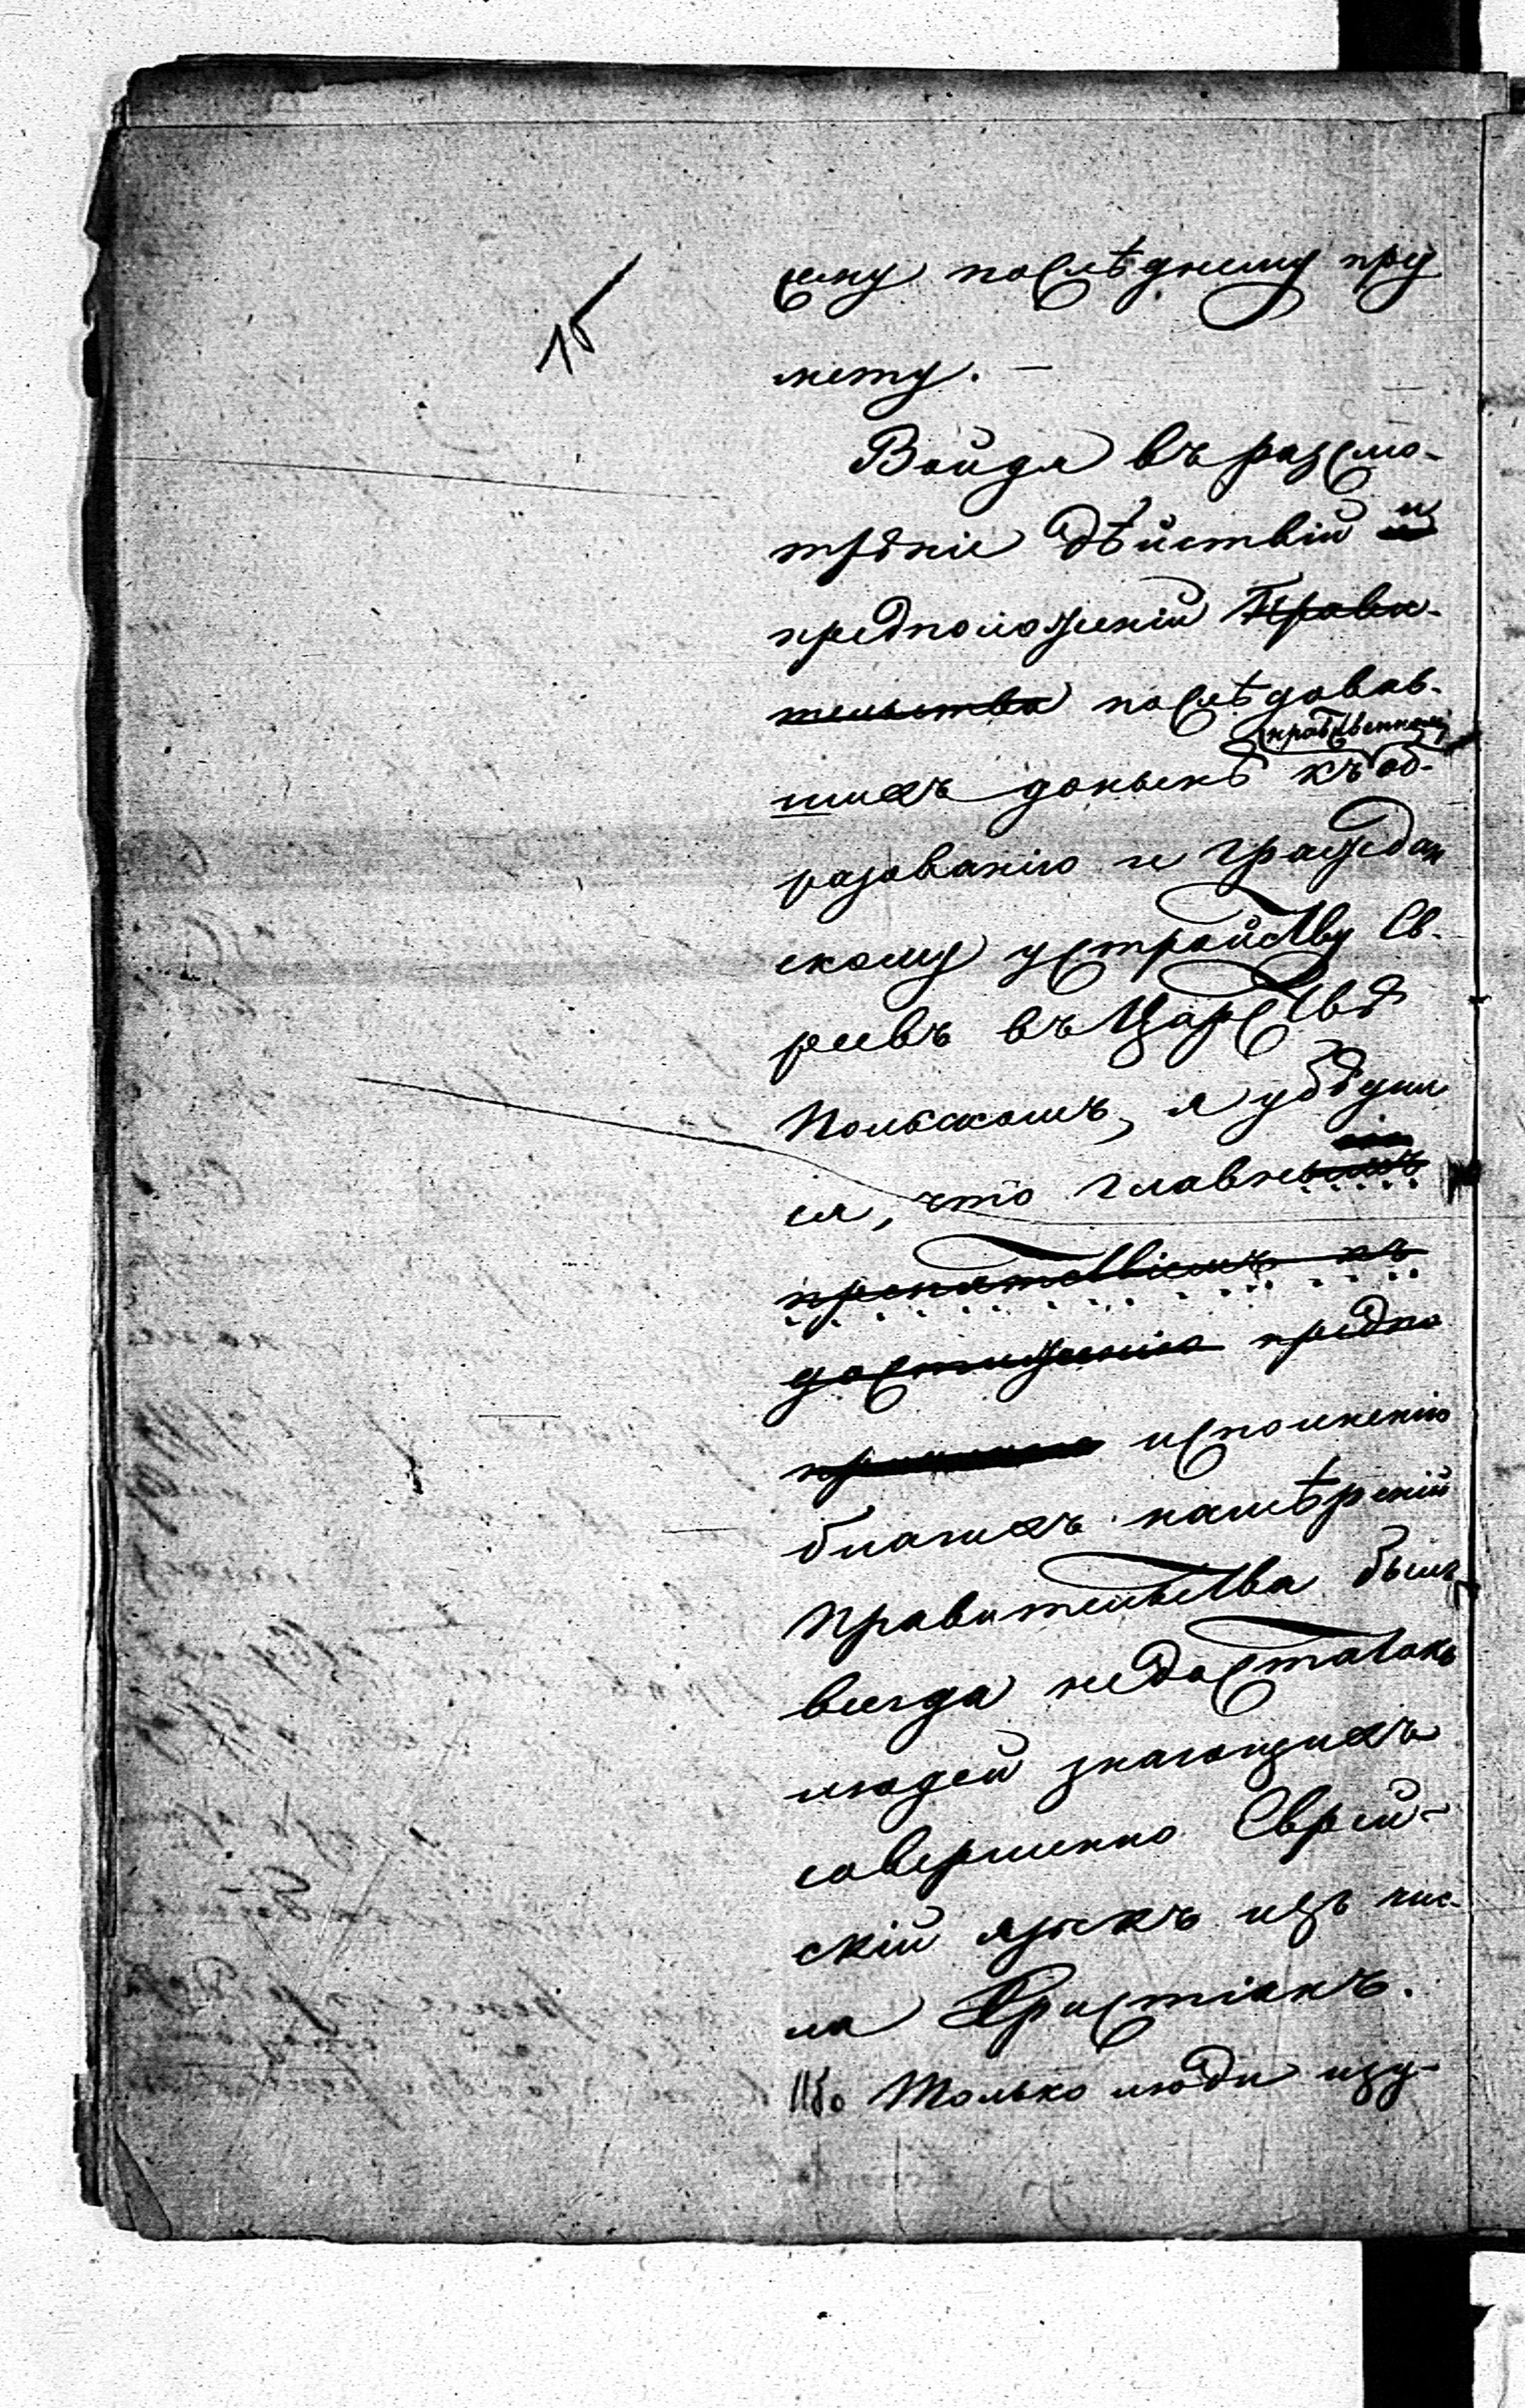 сему послѣднему пред
мету. —
Войдя въ разсмо-
трѣніе дѣйствій и
предположеній Прави-
тельства послѣдовав-
нравственному
шихъ донынѣ къ об-
разованію и граждан
скому устройству Ев-
реевъ въ Царствѣ
Польскомъ, я убѣдил
ся, что главнымъ
препятствіемъ къ
достиженію предпо
исполненію
благихъ намѣреній
Правительства былъ
всегда недостатокъ
людей знающихъ
совершенно Еврей-
скій языкъ изъ чис-
ла Христіанъ.
Только люди изу-